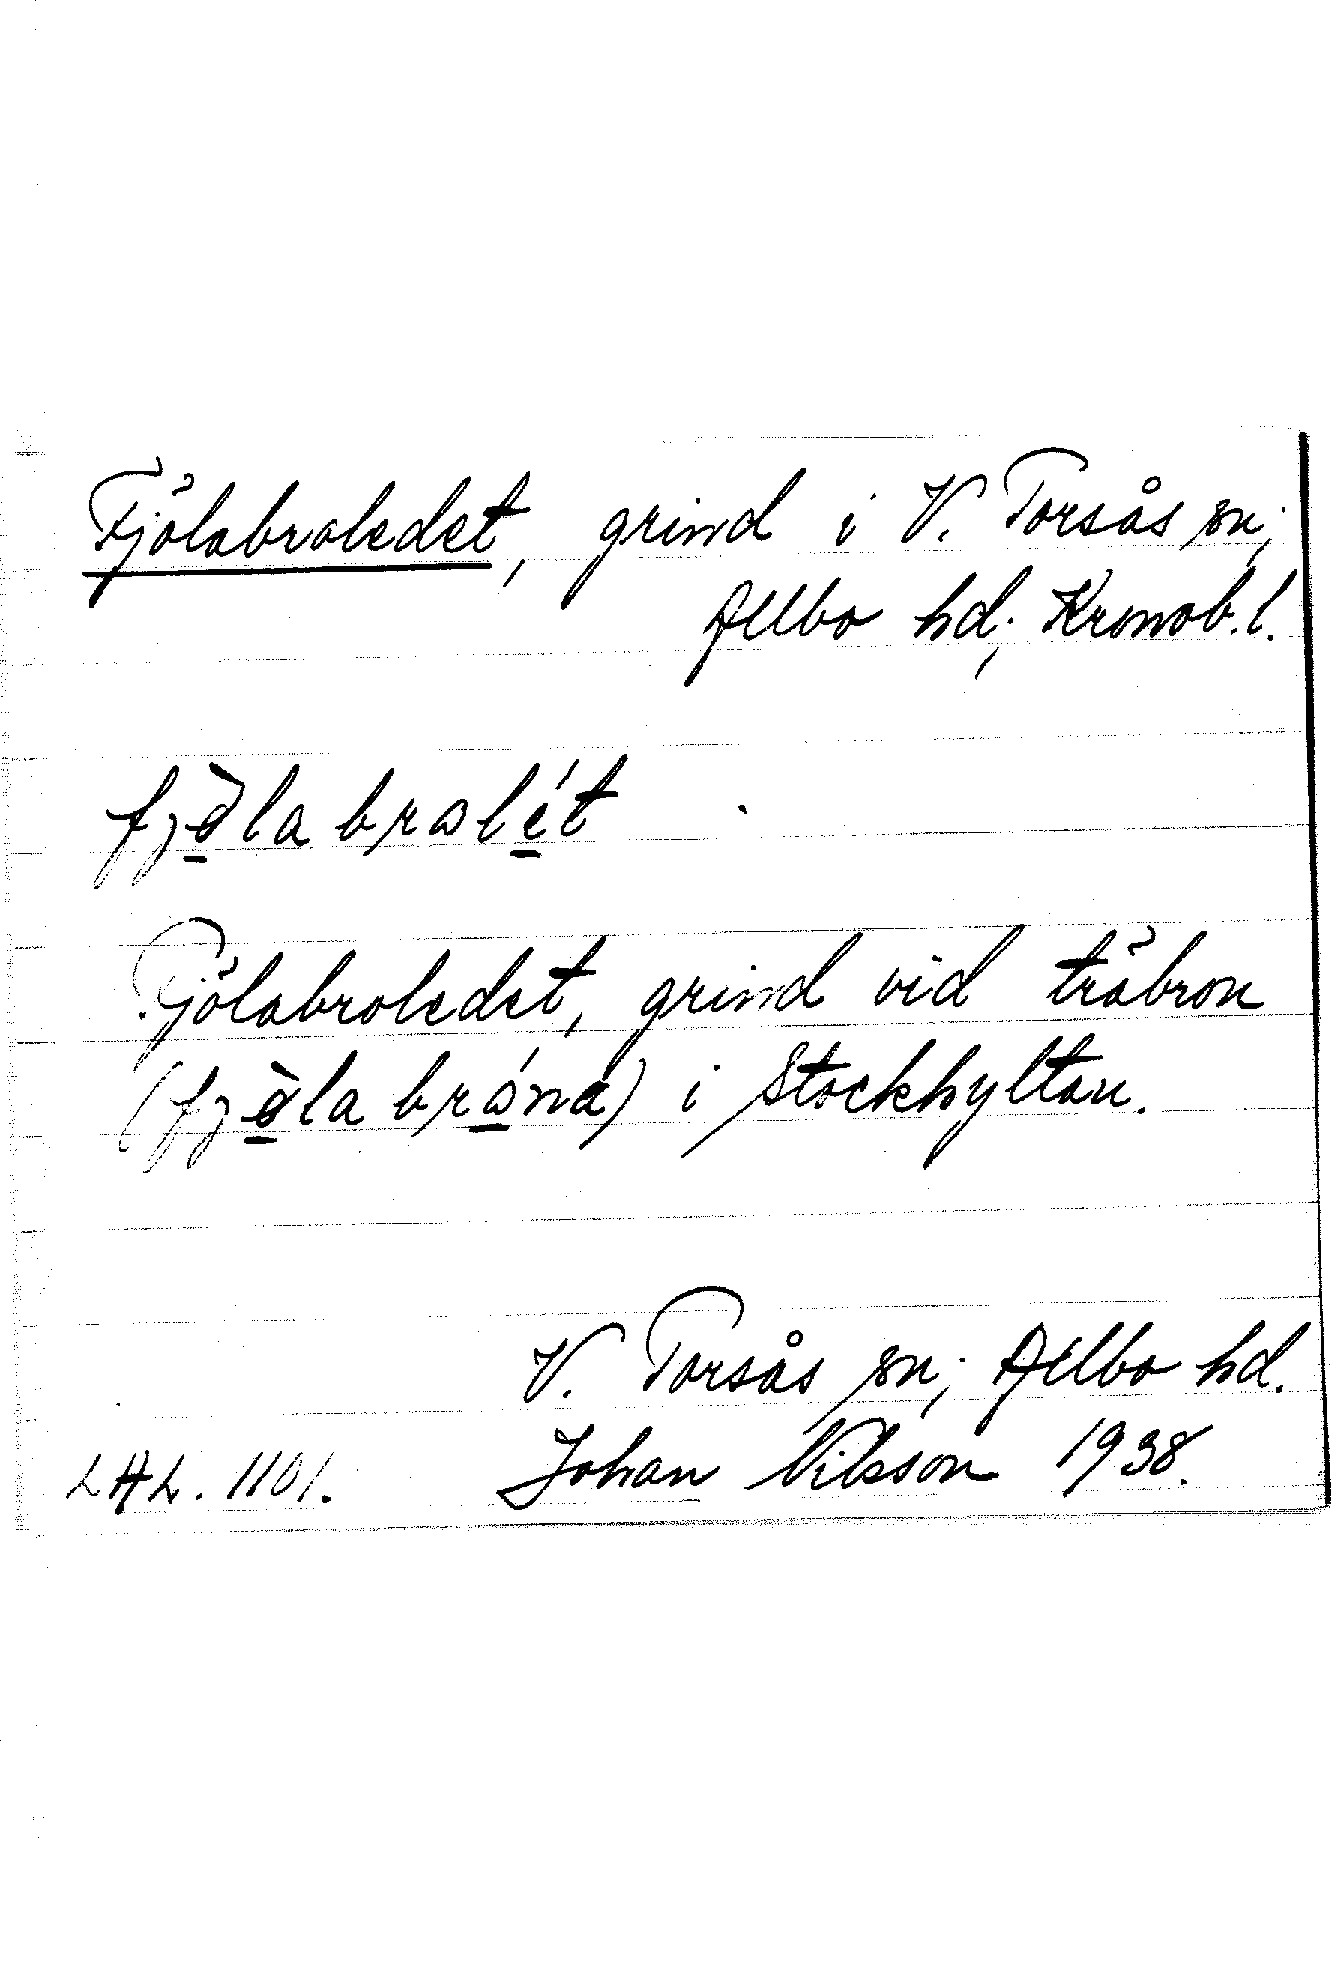 Fjölabroledet, grind i V. Torsås sn;
Allbo hd; Kronob. l.
fjö̀labrolét
Fjölabroledet, grind vid träbron
(fjö̀labróna) i Stockhyltan.
V. Torsås sn; Allbo hd.
LAL. 1101. Johan Nilsson 1938.